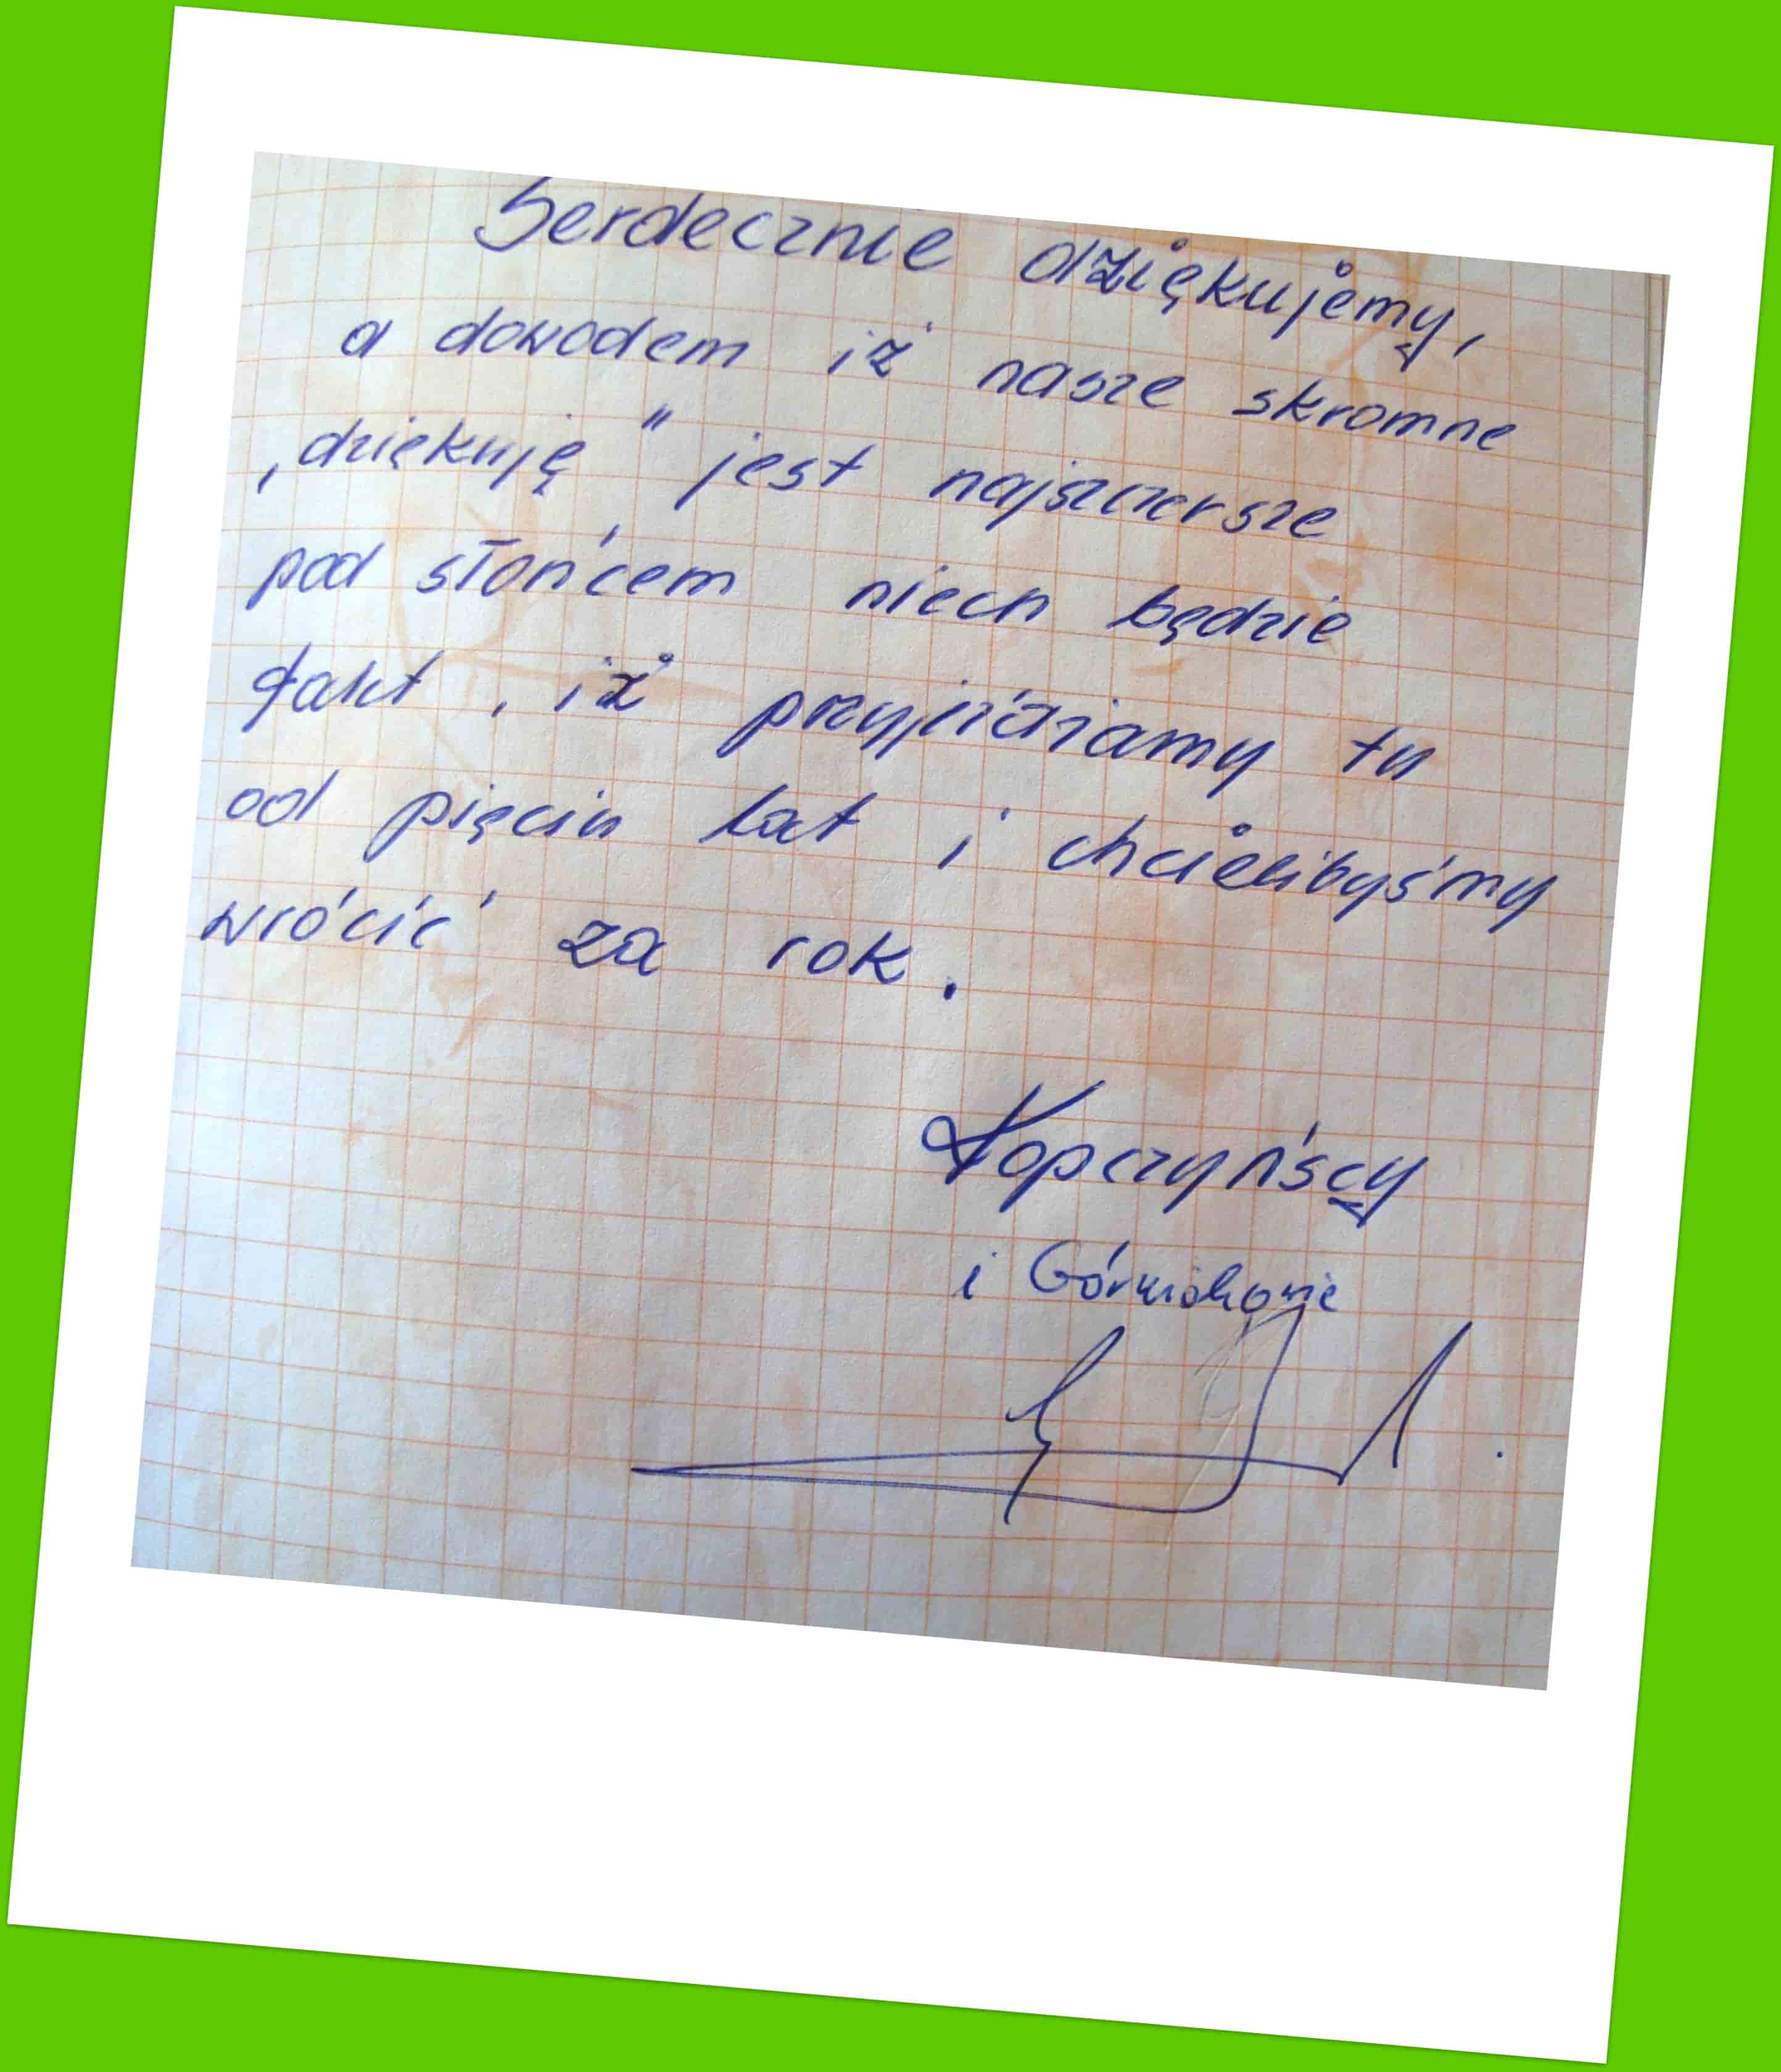 Serdecznie dziękujemy,
a dowodem iż nasze skromne
„dziękuję" jest najszczersze
pod słońcem niech będzie
fakt, iż przyjeżdżamy tu
od pięciu lat i chcielibyśmy
wrócić za rok.
Kopczyńscy
i Górniakowie